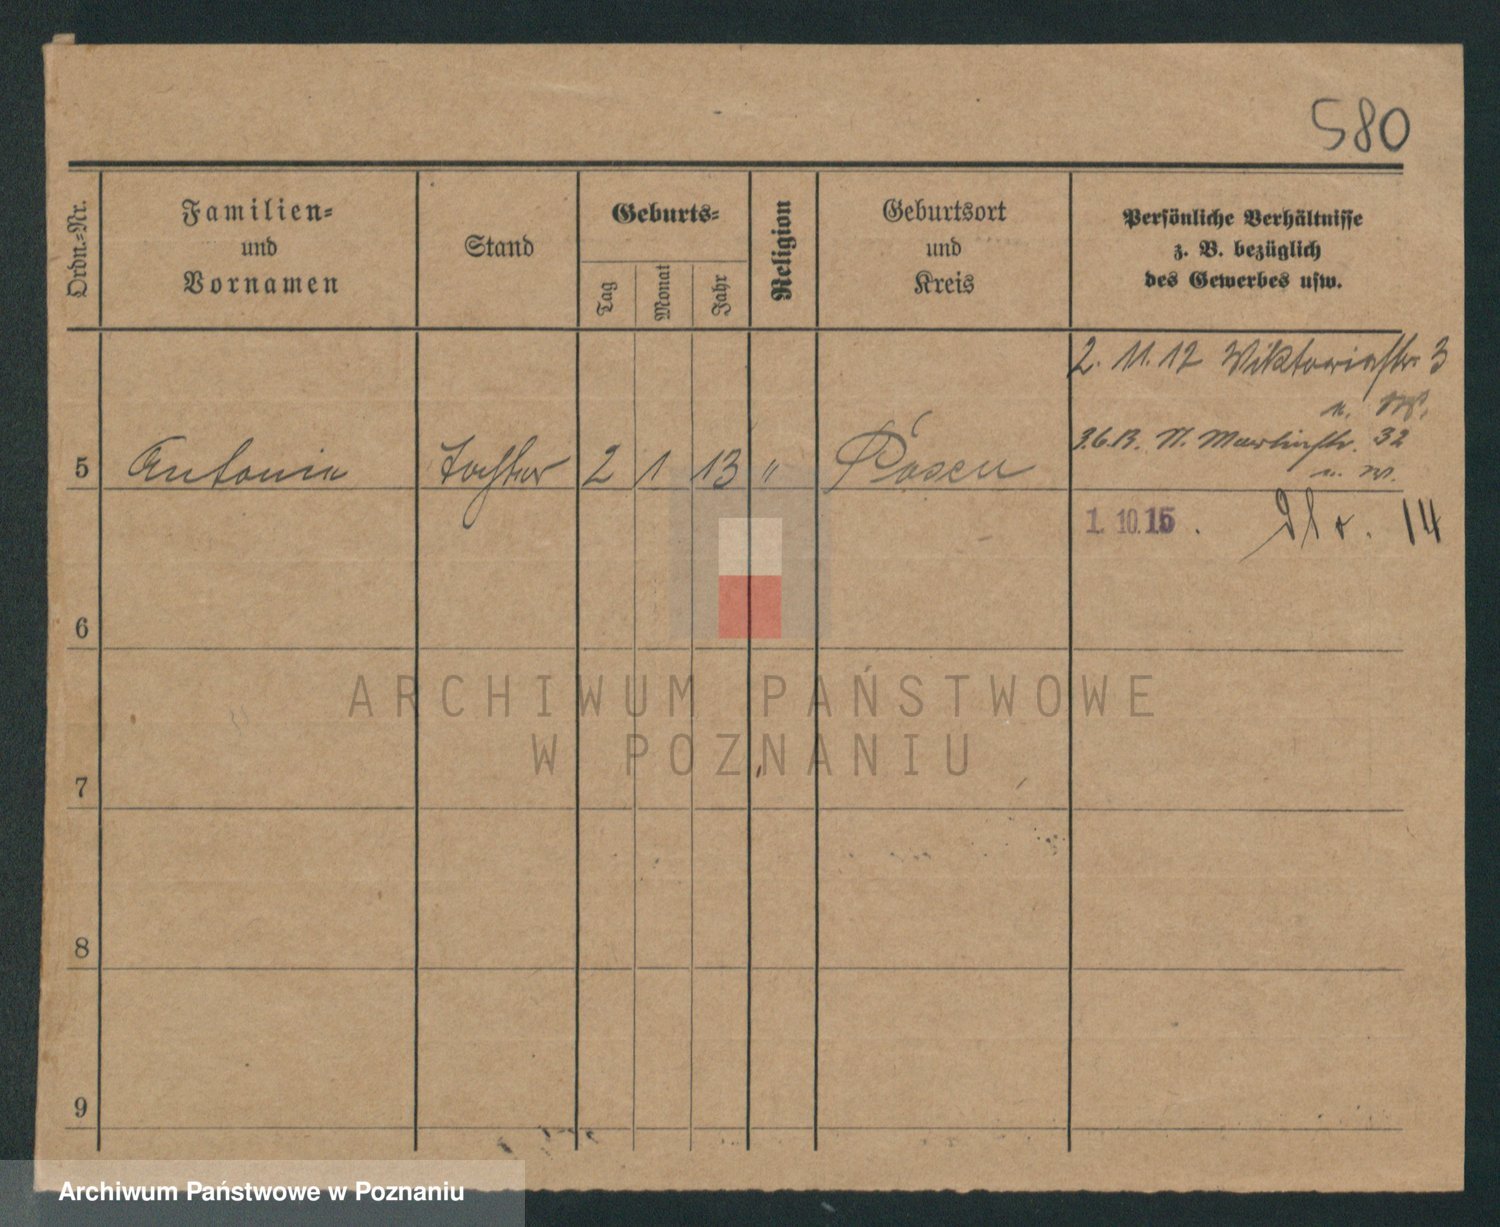 580
Ordn.-Nr.
Familien-
und
Vornamen
Stand
Geburts-
Tag
Monat
Jahr
Religion
Geburtsort
und
Kreis
Persönliche Verhältnisse
z. B. bezüglich
des Gewerbes usw.
2. 11. 12 Viktoriastr. 3
3.6.13. St. Martinstr. 32
5 Antonie Tochter 2 1 13 " Posen
1. 10. 15 . 14
6
ARCHIWUM PAŃSTWOWE
W POZNANIU
7
8
9
Archiwum Państwowe w Poznaniu